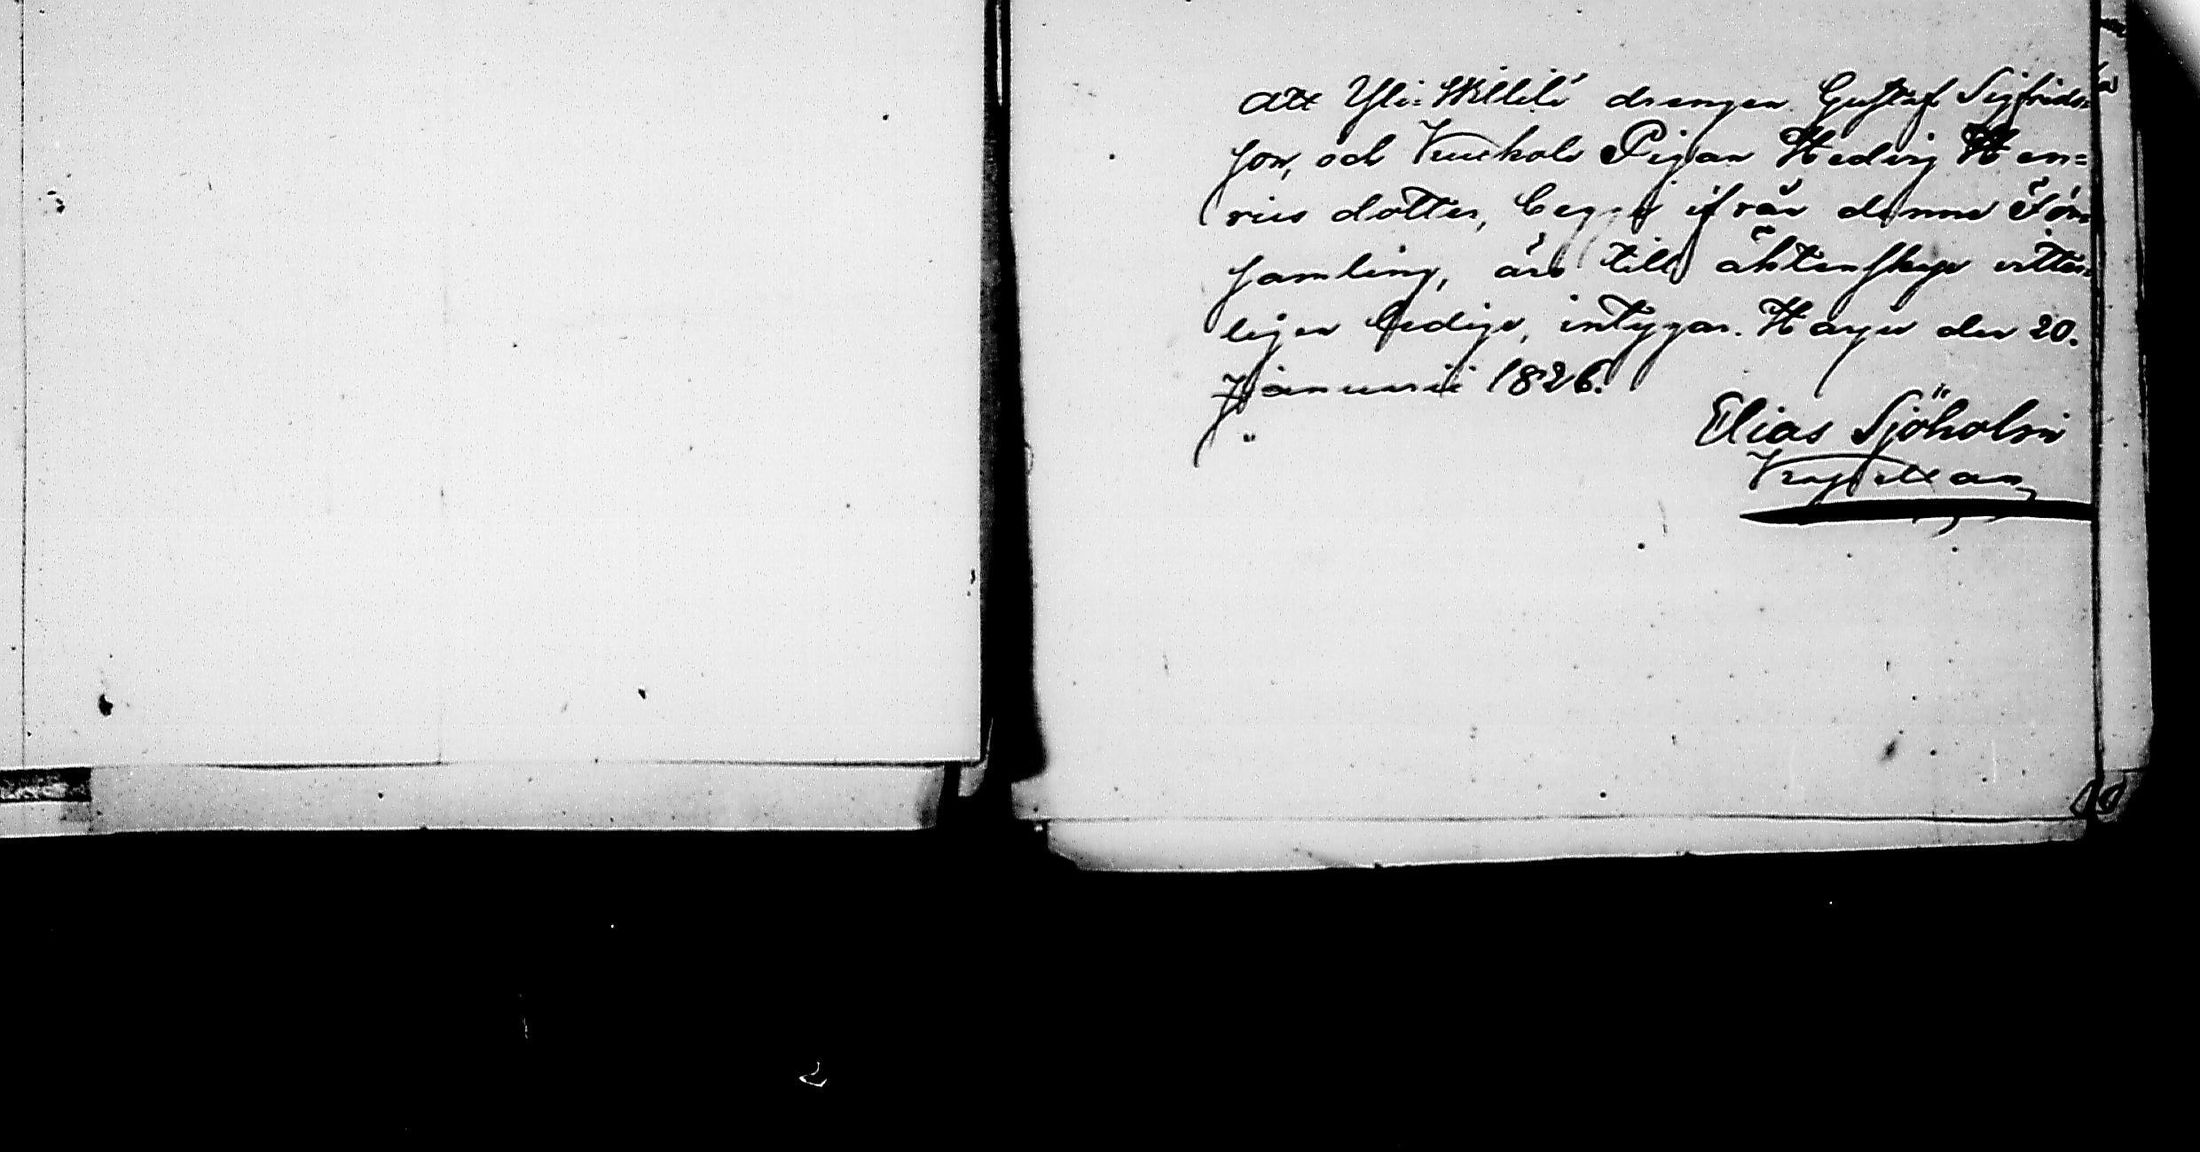 Att Yli: Willilä drengen Gustaf Sigfrids=
son, och Pigan Hedvig Hen=
rics dotter, begge ifrån denna För=
samling, äro till äktenskap vitter=
ligen ledige, intygar. den 20.
Januarii 1826.
Elias Sjöholm